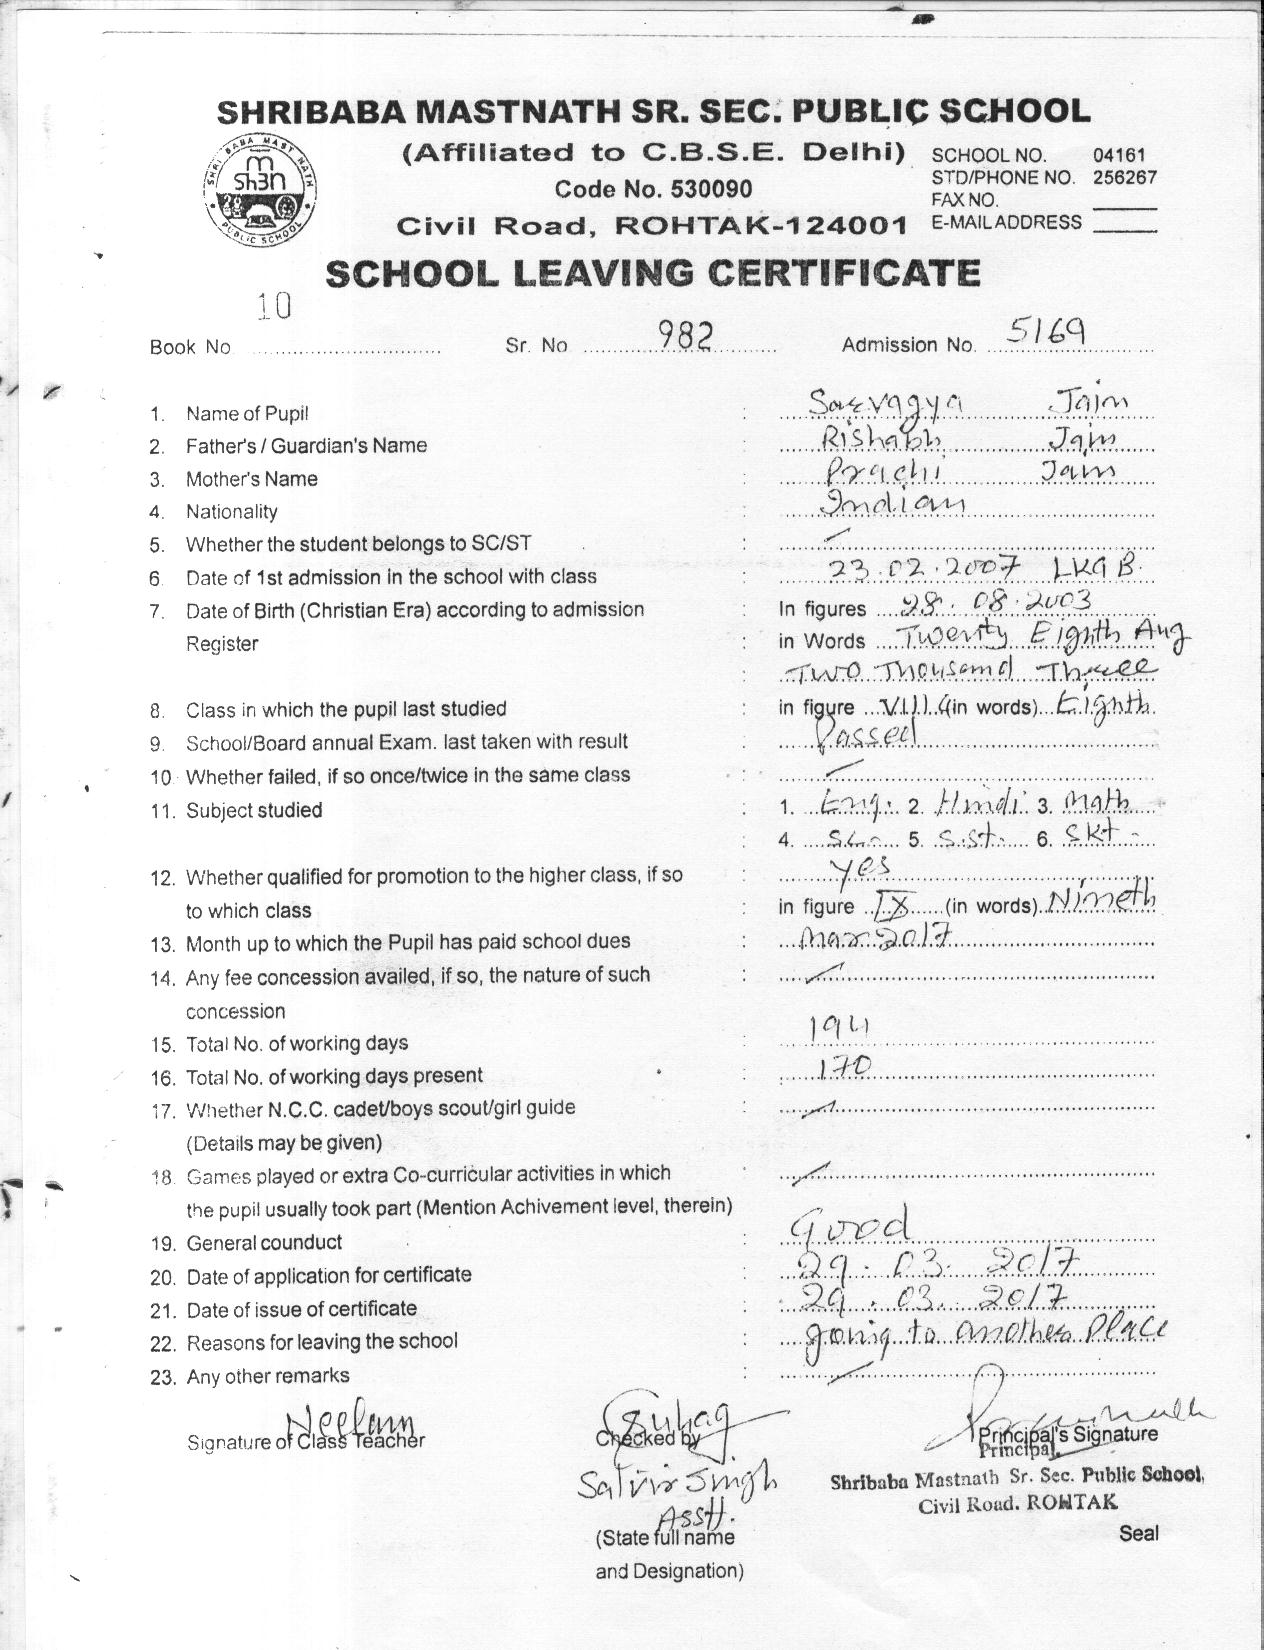 SHRIBABA MASTNATH SR. SEC. PUBLIC SCHOOL
SHRI BABA MAST NATH
m
Sh3n
PUBLIC SCHOOL
(Affiliated to C.B.S.E. Delhi)
Code No. 530090
Civil Road, ROHTAK-124001
SCHOOL NO. 04161
STD/PHONE NO. 256267
FAX NO.
E-MAIL ADDRESS
SCHOOL LEAVING CERTIFICATE
Book No 10 Sr. No 982 Admission No. 5169
1. Name of Pupil : Sarvagya Jain
2. Father's / Guardian's Name : Rishabh Jain
3. Mother's Name : Prachi Jain
4. Nationality : Indian
5. Whether the student belongs to SC/ST :
6. Date of 1st admission in the school with class : 23.02.2007 LKG B.
7. Date of Birth (Christian Era) according to admission : In figures 28.08.2003
Register : in Words Twenty Eighth Aug
: Two Thousand Three
8. Class in which the pupil last studied : in figure VIII (in words) Eighth
9. School/Board annual Exam. last taken with result : Passed
10. Whether failed, if so once/twice in the same class :
11. Subject studied : 1. Eng. 2. Hindi 3. Math
: 4. Sc. 5. S.St. 6. Skt.
12. Whether qualified for promotion to the higher class, if so : yes
to which class : in figure IX (in words) Nineth
13. Month up to which the Pupil has paid school dues : Mar 2017
14. Any fee concession availed, if so, the nature of such :
concession
15. Total No. of working days : 194
16. Total No. of working days present : 170
17. Whether N.C.C. cadet/boys scout/girl guide :
(Details may be given)
18. Games played or extra Co-curricular activities in which
the pupil usually took part (Mention Achivement level, therein)
19. General counduct : Good
20. Date of application for certificate : 29.03.2017
21. Date of issue of certificate : 29.03.2017
22. Reasons for leaving the school : going to another Place
23. Any other remarks :
Neelam Suhag
Signature of Class Teacher Checked by Principal's Signature
Principal
Satvir Singh Shribaba Mastnath Sr. Sec. Public School,
Asstt. Civil Road. ROHTAK
(State full name Seal
and Designation)